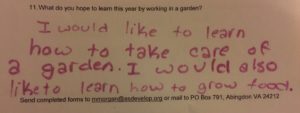 11. What do you hope to learn this year by working in a garden?
I would like to learn
how to take care of
a garden. I would also
like to learn how to grow food.
Send completed forms to mmorgan@asdevelop.org or mail to PO Box 791, Abingdon VA 24212